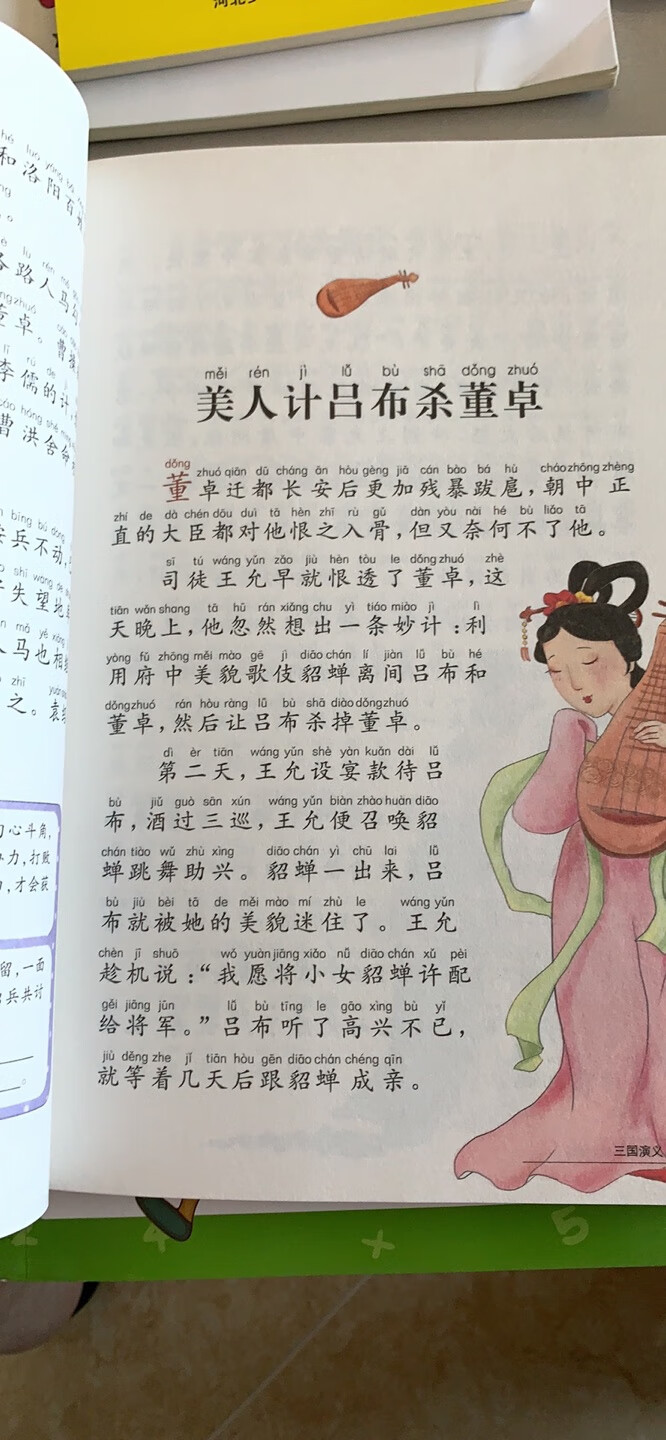 měi rén jì lǚ bù shā dǒng zhuó
美人计吕布杀董卓
dǒng zhuó qiān dū cháng ān hòu gèng jiā cán bào bá hù cháo zhōng zhèng
董卓迁都长安后更加残暴跋扈，朝中正
zhí de dà chén dōu duì tā hèn zhī rù gǔ dàn yòu nài hé bù liǎo tā
直的大臣都对他恨之入骨，但又奈何不了他。
sī tú wáng yǔn zǎo jiù hèn tòu le dǒng zhuó zhè
司徒王允早就恨透了董卓，这
tiān wǎn shang tā hū rán xiǎng chu yì tiáo miào jì lì
天晚上，他忽然想出一条妙计：利
yòng fǔ zhōng měi mào gē jì diāo chán lí jiàn lǚ bù hé
用府中美貌歌伎貂蝉离间吕布和
dǒng zhuó rán hòu ràng lǚ bù shā diào dǒng zhuó
董卓，然后让吕布杀掉董卓。
dì èr tiān wáng yǔn shè yàn kuǎn dài lǚ
第二天，王允设宴款待吕
bù jiǔ guò sān xún wáng yǔn biàn zhào huàn diāo
布，酒过三巡，王允便召唤貂
chán tiào wǔ zhù xìng diāo chán yì chū lai lǚ
蝉跳舞助兴。貂蝉一出来，吕
bù jiù bèi tā de měi mào mí zhù le wáng yǔn
布就被她的美貌迷住了。王允
chèn jī shuō wǒ yuàn jiāng xiǎo nǚ diāo chán xǔ pèi
趁机说：“我愿将小女貂蝉许配
gěi jiāng jūn lǚ bù tīng le gāo xìng bù yǐ
给将军。”吕布听了高兴不已，
jiù děng zhe jǐ tiān hòu gēn diāo chán chéng qīn
就等着几天后跟貂蝉成亲。
三国演义
和洛阳百
各路人马
董卓。曹操
李儒的计
曹洪舍命
安兵不动
子失望
人马也相
之。袁
勾心斗角，
力，打败
，才会获
留，一面
兵共讨
4 × 5